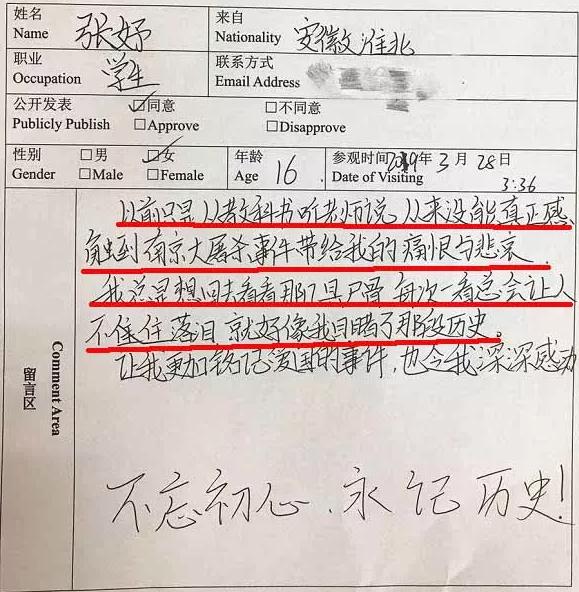 姓名 张妤 来自 安徽淮北
Name Nationality
职业 学生 联系方式
Occupation Email Address
公开发表 ☑同意 □不同意
Publicly Publish □Approve □Disapprove
性别 □男 ☑女 年龄 16 参观时间 2019年3月28日
Gender □Male □Female Age Date of Visiting 3:36
以前只是从教科书听老师说,从来没能真正感
触到南京大屠杀事件带给我的痛恨与悲哀.
我总是想回去看看那几具尸骨 每次一看总会让人
不住住落泪 就好像我目睹了那段历史。
让我更加铭记爱国的事件,也令我深深感动
不忘初心、永记历史!
留言区
Comment Area